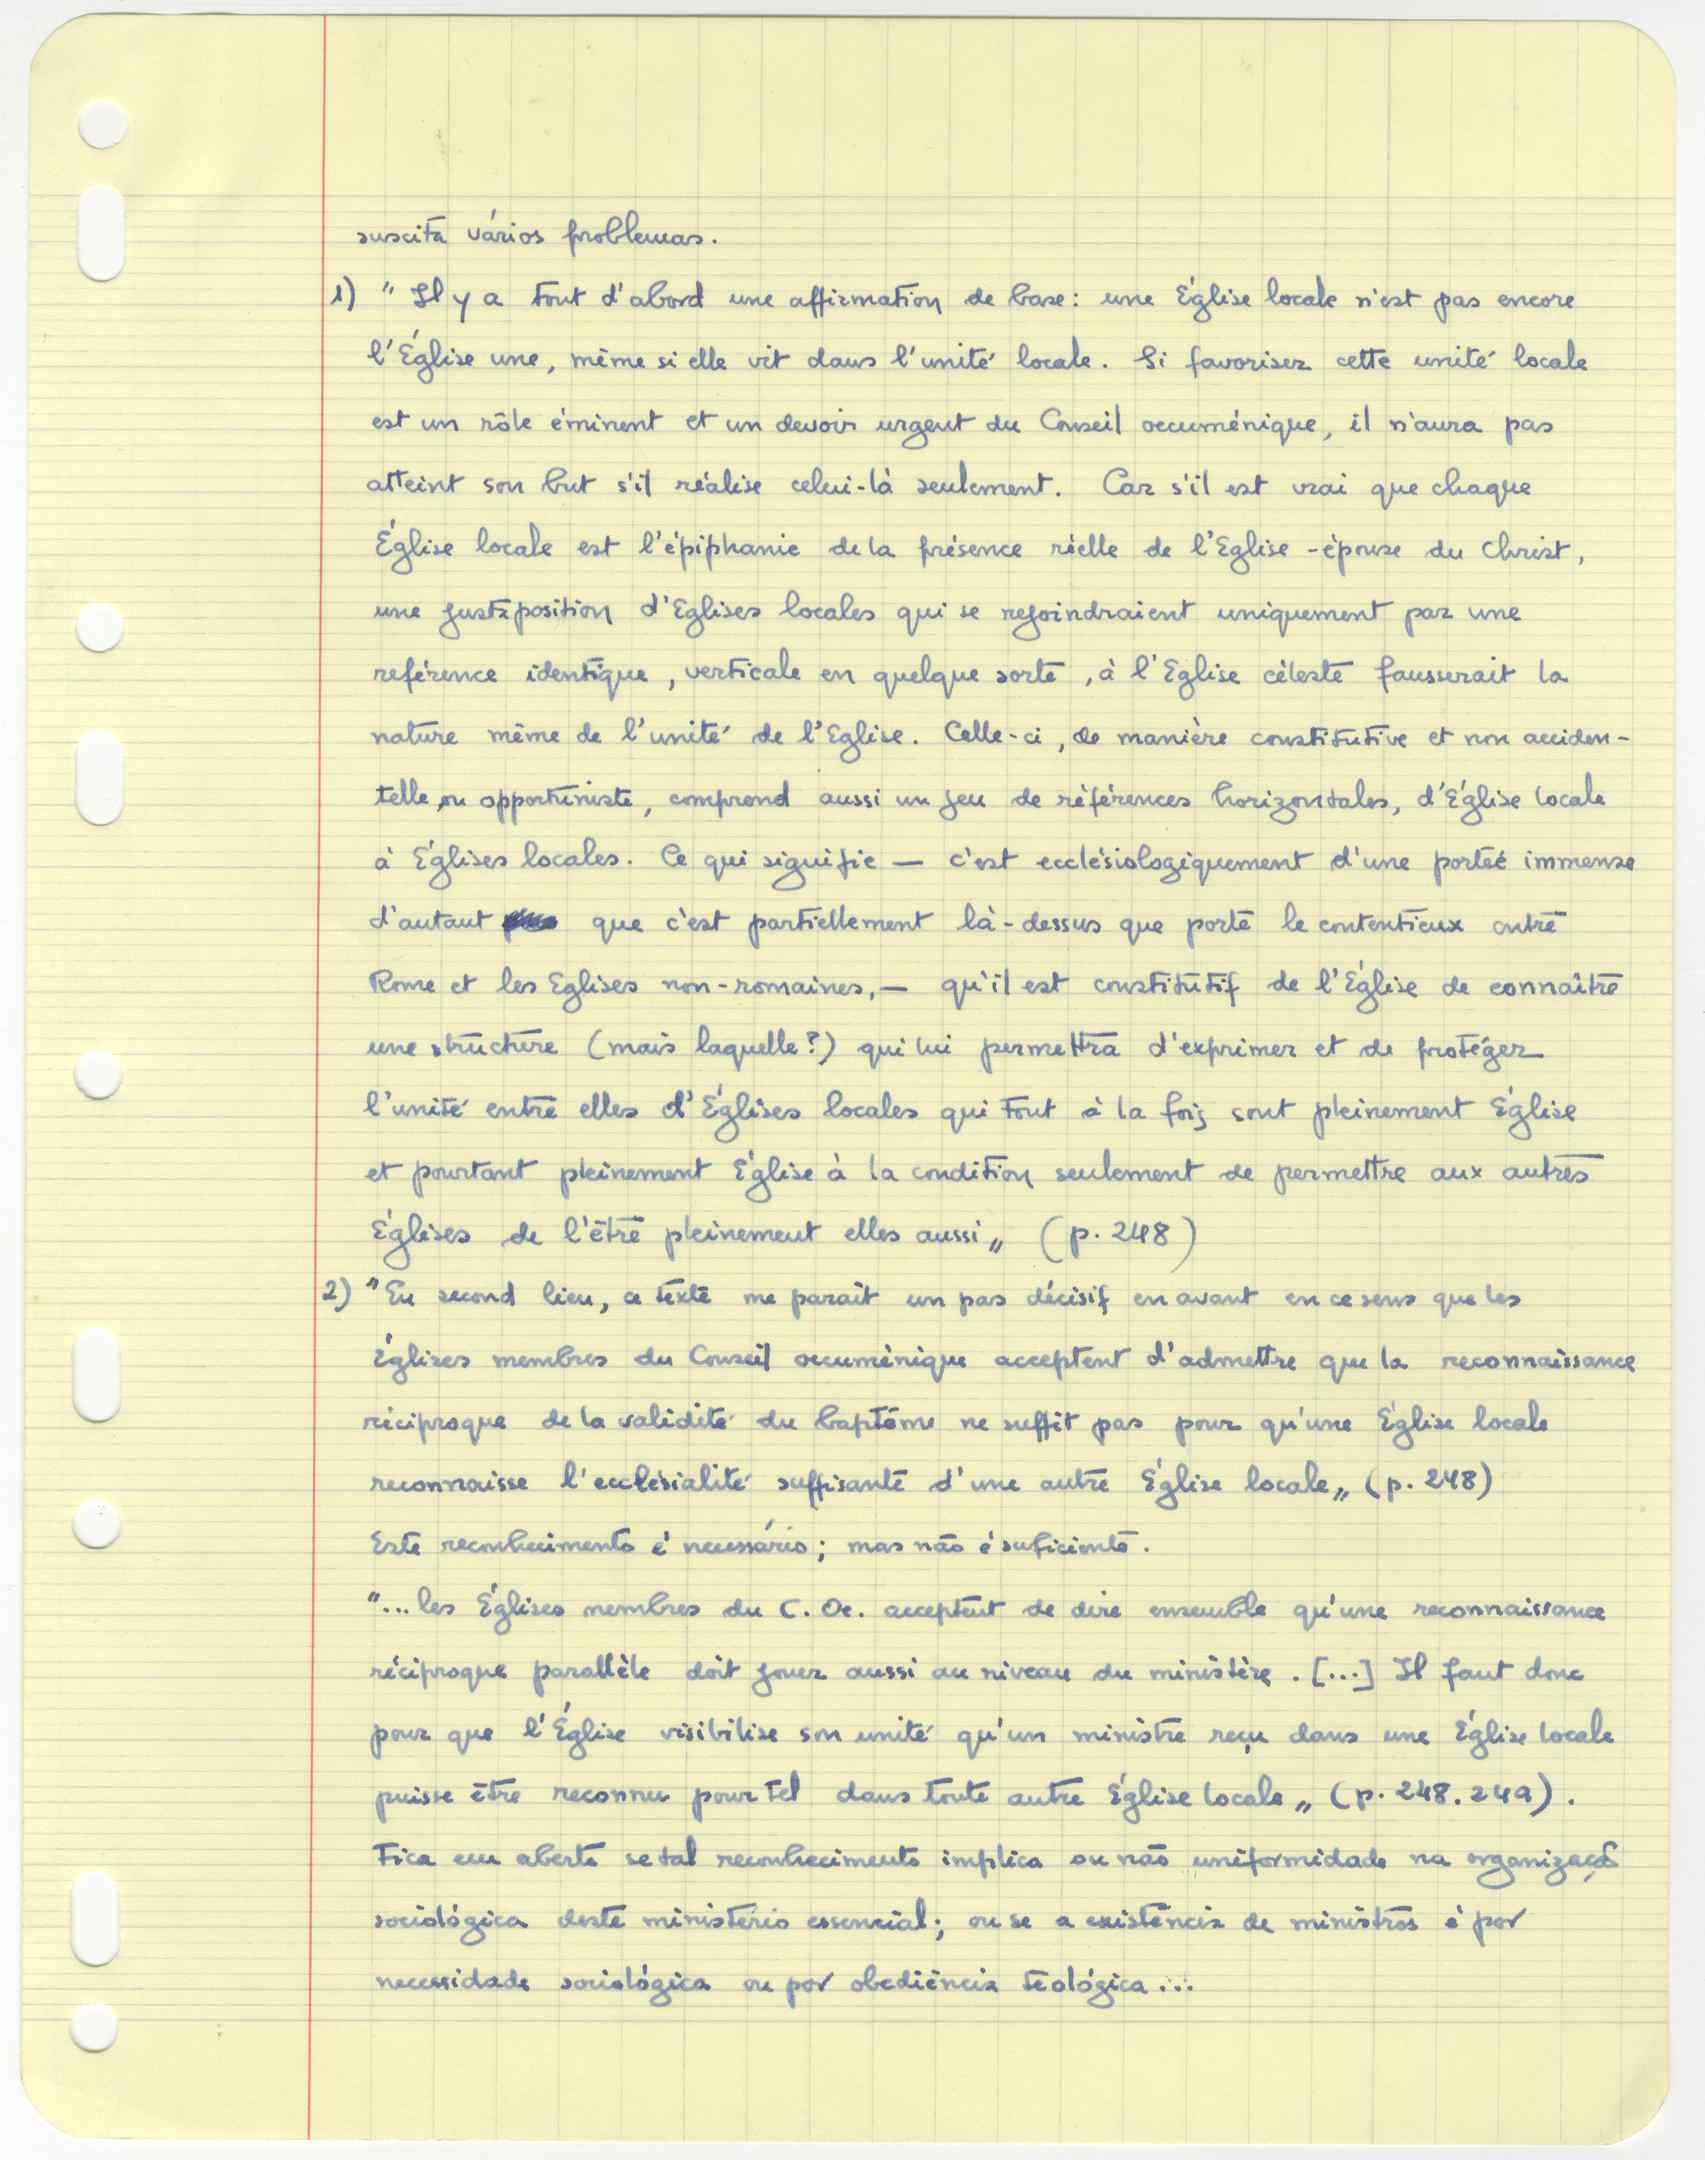 suscita vários problemas.
1) " Il y a tout d'abord une affirmation de base : une Église locale n'est pas encore
l'Église une, même si elle vit dans l'unité locale. Si favoriser cette unité locale
est un rôle éminent et un devoir urgent du Conseil oecuménique, il n'aura pas
atteint son but s'il réalise celui-là seulement. Car s'il est vrai que chaque
Église locale est l'épiphanie de la présence réelle de l'Eglise-épouse du Christ,
une juxtaposition d'Eglises locales qui se rejoindraient uniquement par une
reférence identique, verticale en quelque sorte, à l'Eglise céleste fausserait la
nature même de l'unité de l'Eglise. Celle-ci, de manière constitutive et non acciden-
telle ou opportuniste, comprend aussi un jeu de références horizontales, d'Église locale
à Églises locales. Ce qui signifie — c'est ecclésiologiquement d'une portée immense
d'autant que c'est partiellement là-dessus que porte le contentieux entre
Rome et les Eglises non-romaines, — qu'il est constitutif de l'Église de connaître
une structure (mais laquelle?) qui lui permettra d'exprimer et de protéger
l'unité entre elles d'Églises locales qui tout à la fois sont pleinement Église
et pourtant pleinement Église à la condition seulement de permettre aux autres
Églises de l'être pleinement elles aussi „ (p. 248)
2) "En second lieu, ce texte me parait un pas décisif en avant en ce sens que les
Églises membres du Conseil oecuménique acceptent d'admettre que la reconnaissance
réciproque de la validité du baptême ne suffit pas pour qu'une Église locale
reconnaisse l'ecclésialité suffisante d'une autre Église locale „ (p. 248)
Este reconhecimento é necessário; mas não é suficiente.
"... les Églises membres du C. Oe. acceptent de dire ensemble qu'une reconnaissance
réciproque parallèle doit jouer aussi au niveau du ministère. [...] Il faut donc
pour que l'Église visibilise son unité qu'un ministre reçu dans une Église locale
puisse être reconnu pour tel dans toute autre Église locale „ (p. 248.249).
Fica em aberto se tal reconhecimento implica ou não uniformidade na organização
sociológica deste ministério essencial; ou se a existência de ministros é por
necessidade sociológica ou por obediência teológica...